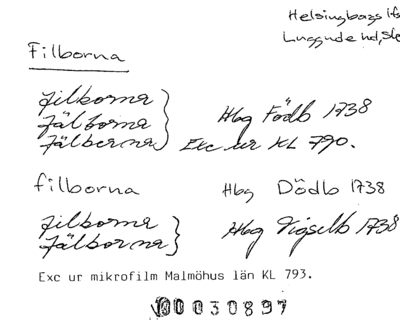 Helsingborgs lfs
Luggude hd, Sk
Filborna
Filborna
Fälborna
Fälberna
Hbg Födb 1738
Exc ur KL 790.
Filborna Hbg Dödb 1738
Filborna
Fälborna
Hbg Vigselb 1738
Exc ur mikrofilm Malmöhus län KL 793.
00030897